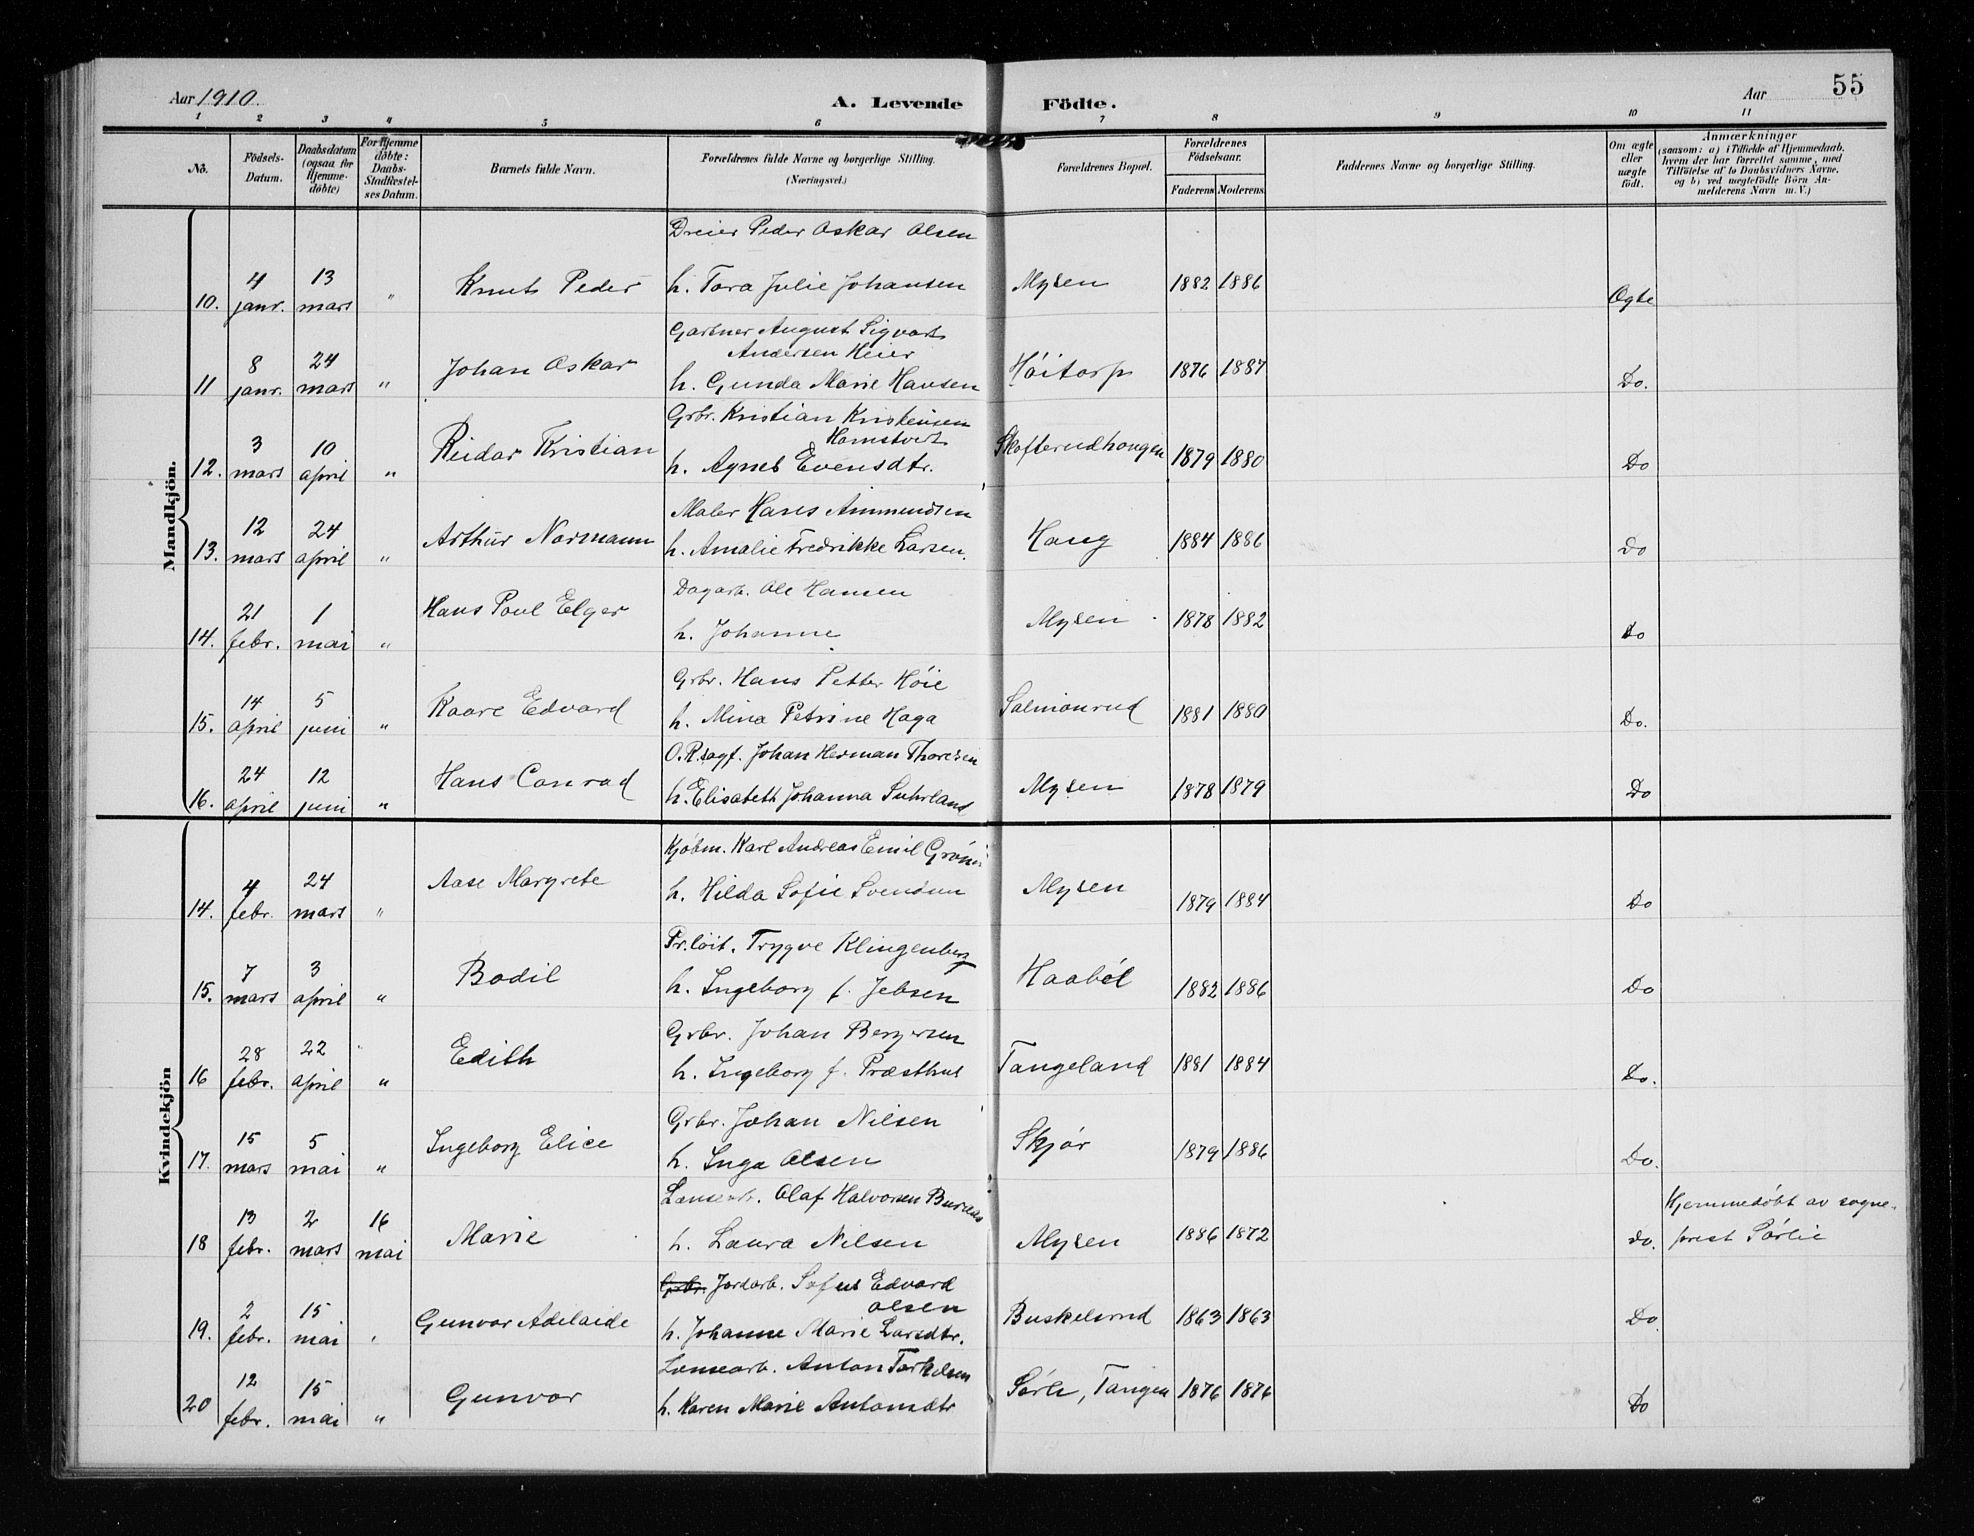 Aar 1910. A. Levende Födte. Aar 55
1 2 3 4 5 6 7 8 9 10 11
No. Födsels-Datum. Daabsdatum (ogsaa for Hjemme-döbte) For Hjemme döbte: Daabs-Stadfæstel-ses Datum. Barnets fulde Navn. Forældrenes fulde Navne og borgerlige Stilling. (Næringsvei.) Forældrenes Bopæl. Forældrenes Födselsaar. Faderens Moderens Faddernes Navne og borgerlige Stilling. Om ægte eller uægte födt. Anmærkninger (saasom: a) i Tilfælde af Hjemmedaab, hvem der har forrettet samme, med Tilföielse af to Daabsvidners Navne, og b) ved uegtefödte Börn An-melderens Navn m. V.)
Mandkjön.
Dreier Peder Oskar Olsen
10. 4 janr. 13 mars " Knut Peder h. Tora Julie Johansen Mysen 1882 1886 Ægte
Gartner August Sigvart
Andersen Heier
11 8 janr. 24 mars " Johan Oskar h. Gunda Marie Hansen Høitorp 1876 1887 Do.
Grbr. Kristian Kristensen
Hamstvedt
12. 3 mars 10 april " Reidar Kristian h. Agnes Evensdtr. Skofterudhaugen 1879 1880 Do
Maler Hans Ammundsen
13. 12 mars 24 april " Arthur Normann h. Amalie Fredrikke Larsen. Haug 1884 1886 Do
Dagarb. Ole Hansen
14. 21 febr. 1 mai " Hans Poul Elger h. Johanne Mysen 1878 1882 Do
Grbr. Hans Petter Høie
15. 14 april 5 juni " Kaare Edvard h. Mina Petrine Haga Salmonrud 1881 1880 Do.
O.R.sagf. Johan Herman Thoresen
16. 24 april 12 juni " Hans Conrad h. Elisabeth Johanna Suhrland Mysen 1878 1879 Do
Kvindekjön
Kjøbm. Karl Andreas Emil
14. 4 febr. 24 mars " Aase Margrete h. Hilda Sofie Svendsen Mysen 1879 1884 Do
Pr.löit. Trygve Klingenberg
15. 7 mars 3 april " Bodil h. Ingeborg f. Jebsen Haabøl 1882 1886 Do
Grbr. Johan Bergersen
16 28 febr. 22 april " Edith h. Ingeborg f. Præsthus Tangeland 1881 1884 Do.
Grbr. Johan Nilsen
17. 15 mars 5 mai " Ingeborg Elice h. Inga Olsen Skjør 1879 1886 Do.
Olaf Halvorsen
18 13 febr. 2 mars 16 mai Marie h. Laura Nilsen Mysen 1886 1872 Do. Hjemmedøbt av sogne-
prest Sørlie
Grbr. Jordarb. Sofus Edvard
Olsen
19. 2 febr. 15 mai " Gunvor Adelaide h. Johanne Marie Larsdtr. Buskelund 1863 1863 Do
Anton Torkelsen
20 12 febr. 15 mai " Gunvor h. Karen Marie Antonsdtr Sørli, Tangen 1876 1876 Do